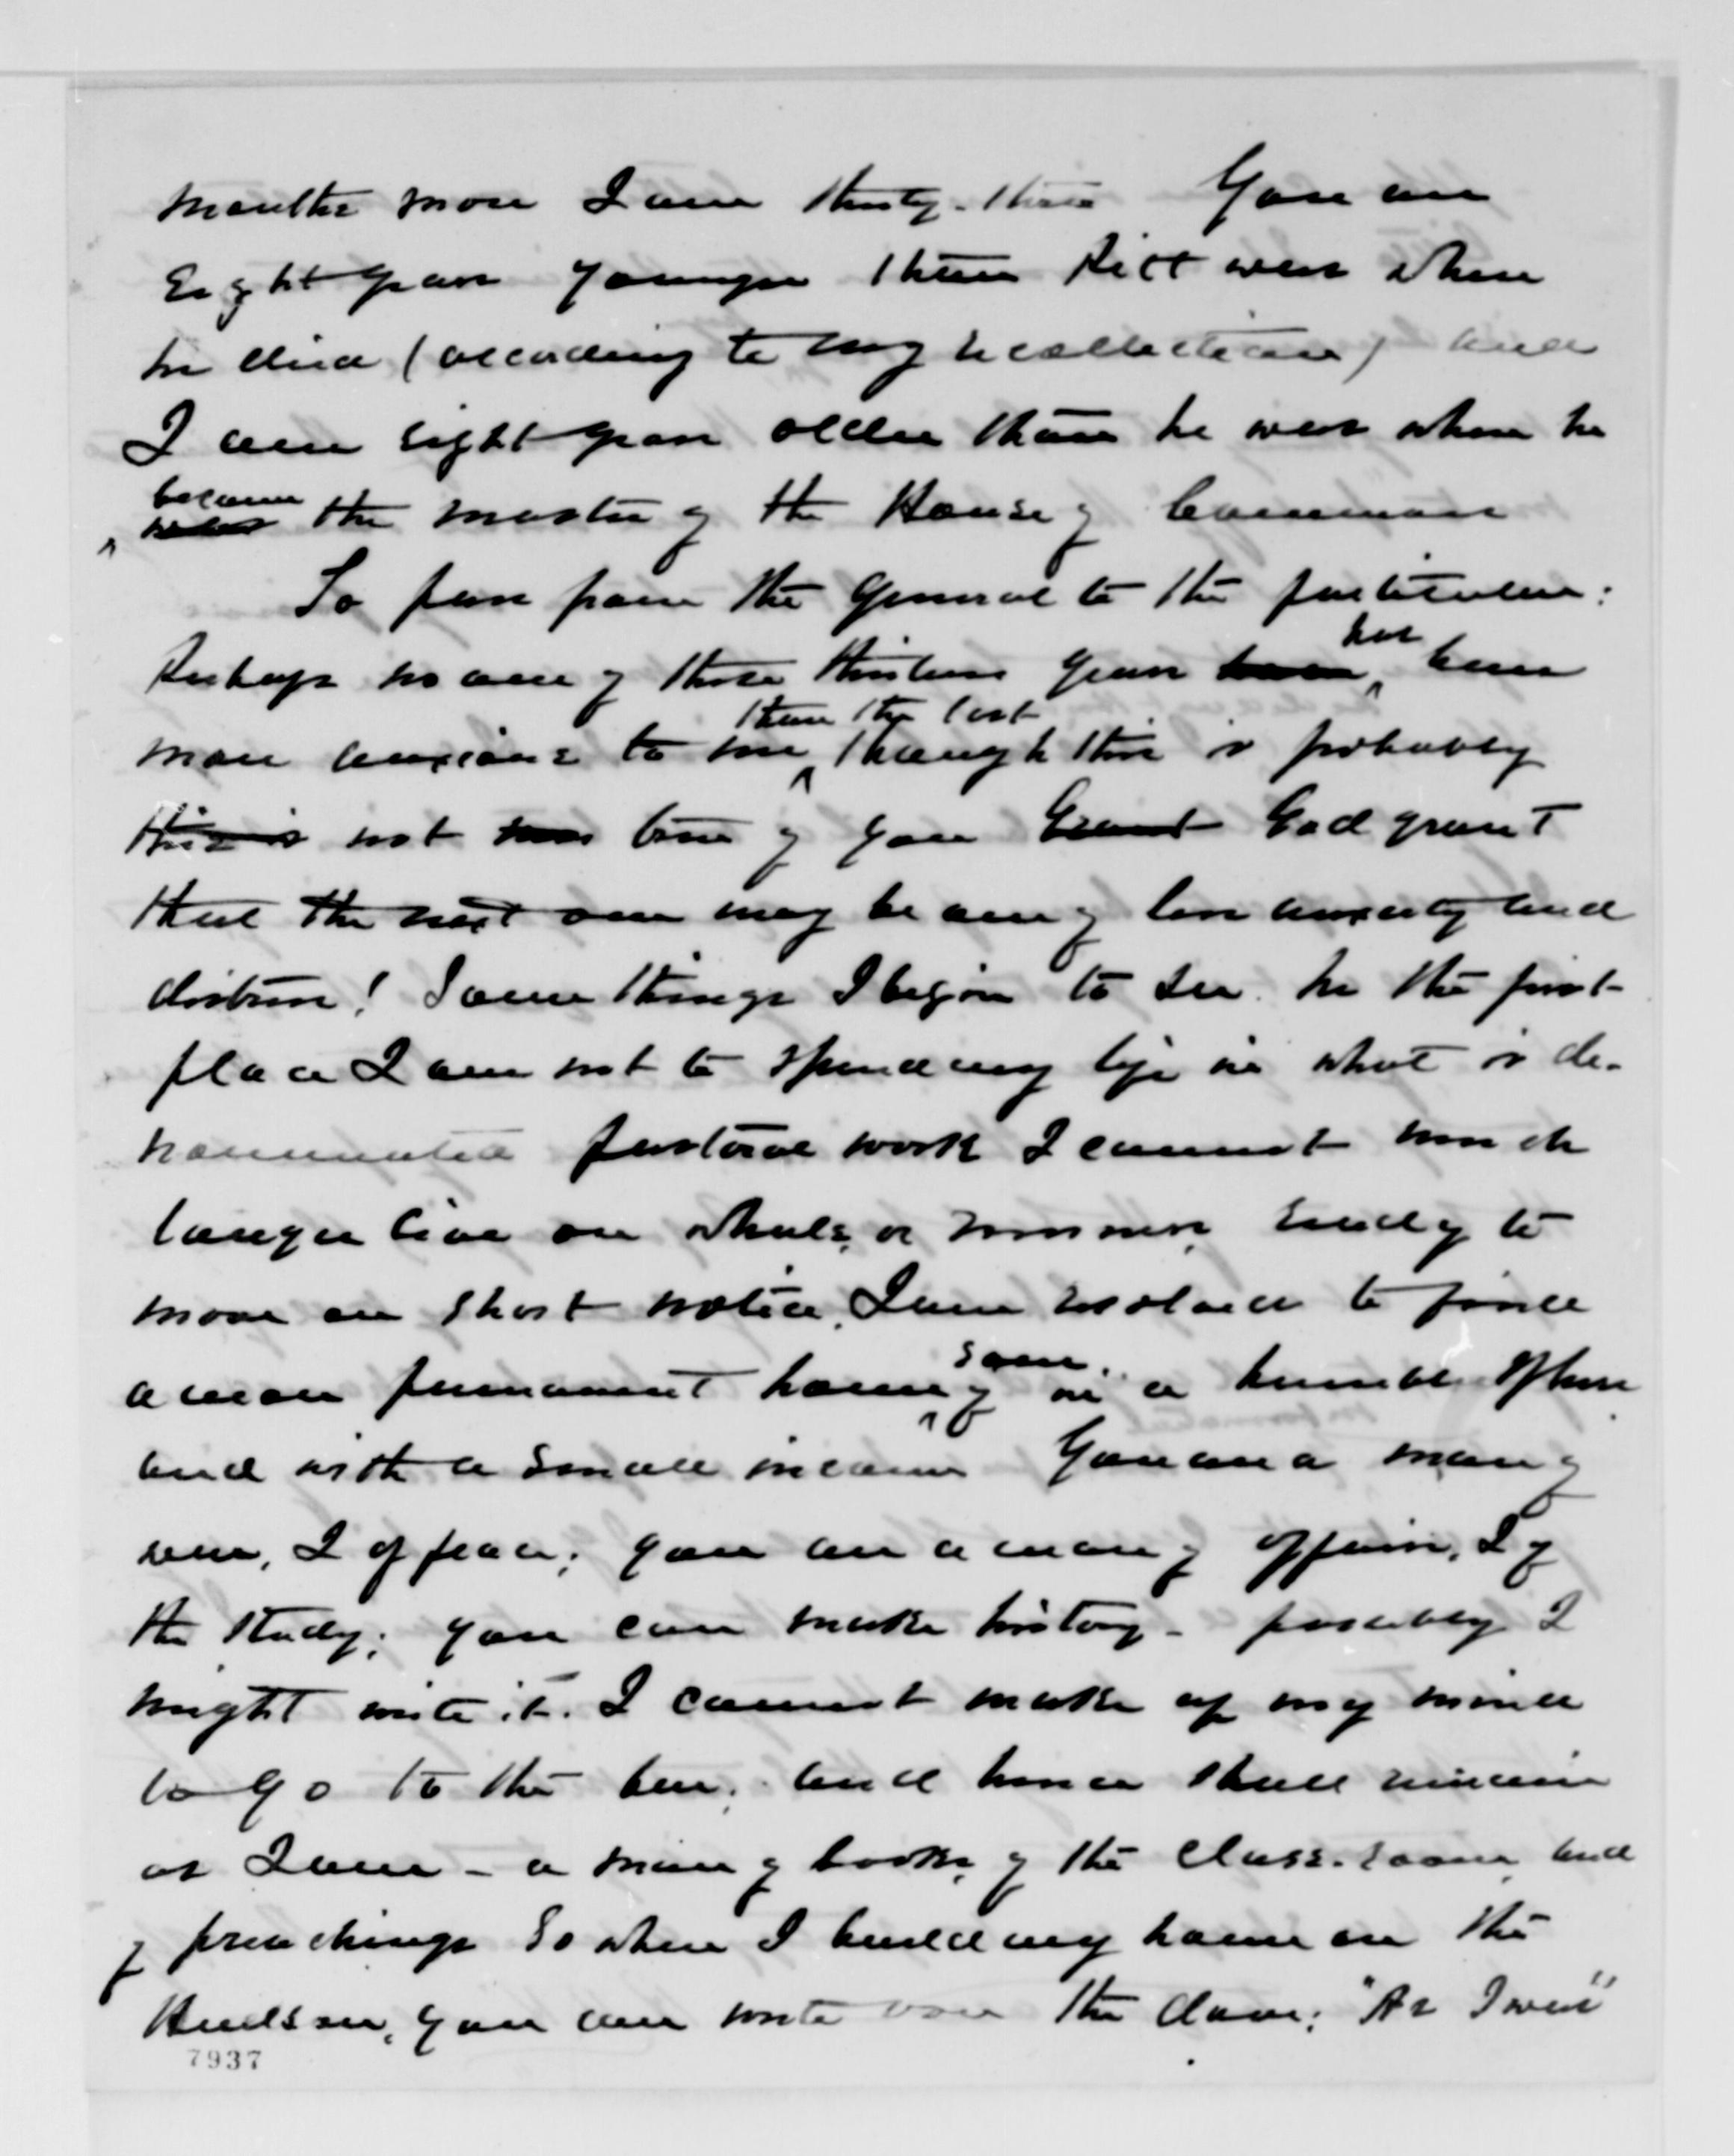 months more I am thirty-three You are
Eight years younger than Pitt was when
he died (according to my recollection) and
I am eight years older than he was when he
became was the master of the House of Commons
So far from the General to the particular:
Perhaps no one of those thirteen years have has been
more anxious to me than the last though this is probably
this is not true of you Grant God grant
that the next one may be one of less anxiety and
distress! Some things I begin to see. In the first
place I am not to spend my life in what is de-
nominated pastoral work I cannot much
longer live on wheels, or runners, ready to
move on short notice. I am resolved to find
a more permanent home, if in some a humble sphere
and with a small income You are a man of
war, I of peace; you are a man of affairs, I of
the study; you can make history - possibly I
might write it. I cannot make up my mind
to go to the bar; and hence shall remain
as I am - a man of books, of the class-room, and
of preachings So when I build my home on the
Hudson, you can write over the door: "As I was"
7937